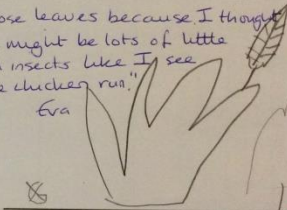 ose leaves because I thought
might be lots of little
insects like I see
e chicken run."
Eva